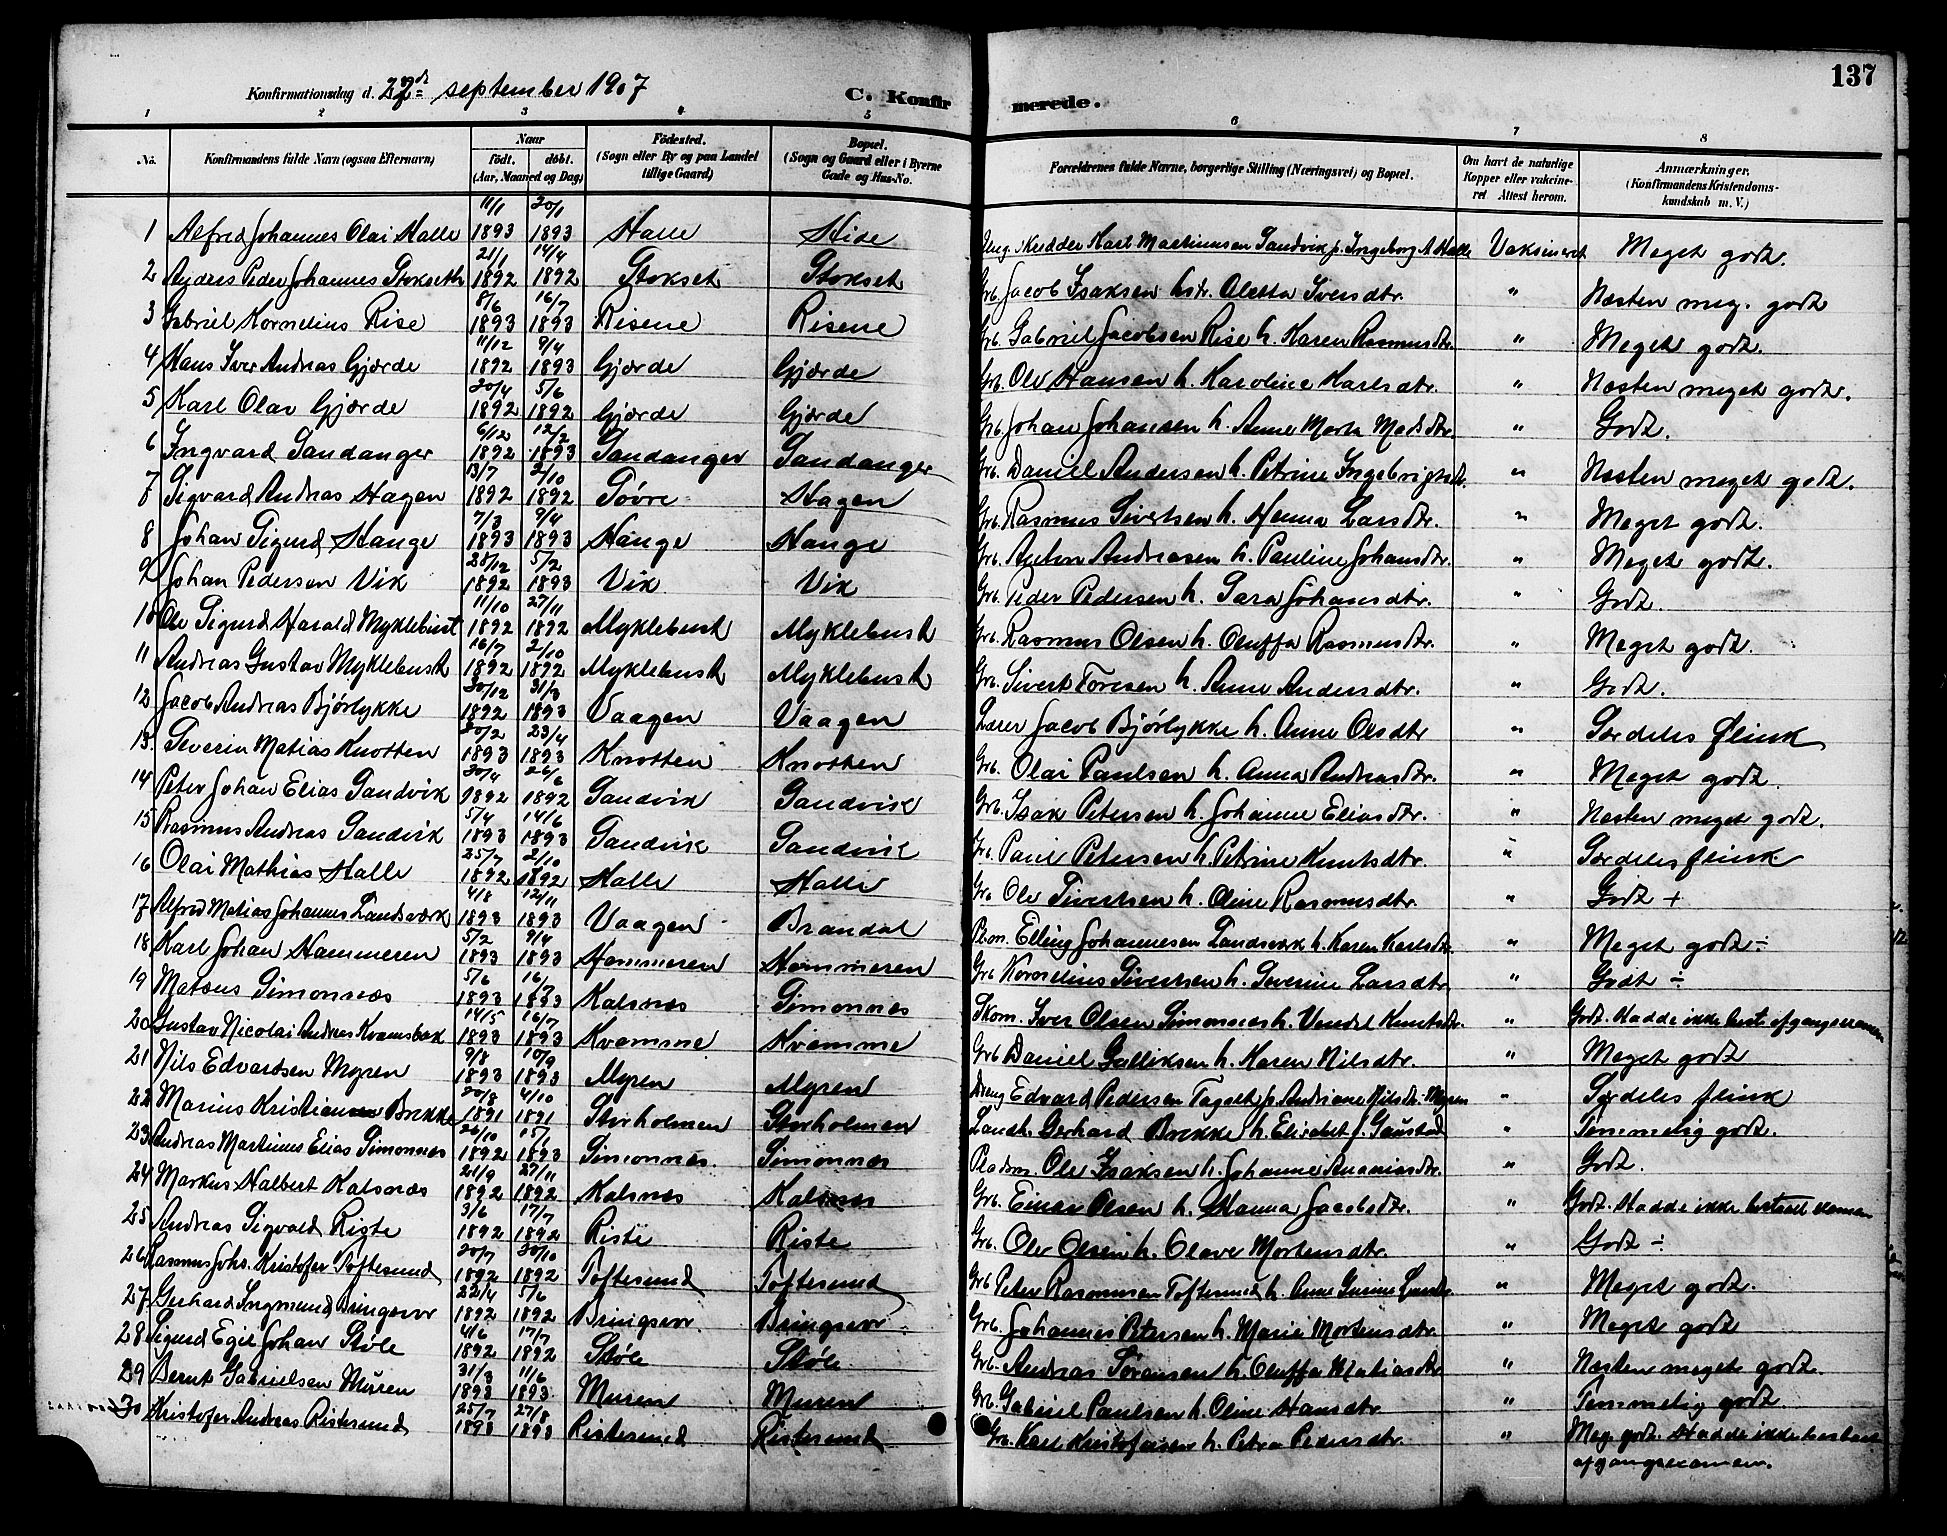 137
Konfirmationsdag d. 22de september 1907
C. Konfirmerede.
1 2 3 4 5 6 7 8
No. Konfirmandens fulde Navn (ogsaa Efternavn) Naar født. døbt. (Aar, Maaned og Dag) Fødested. (Sogn eller By og paa Landet tillige Gaard) Bopæl. (Sogn og Gaard eller i Byerne Gade og Hus-No. Forældrenes fulde Navne, borgerlige Stilling (Næringsvei) og Bopæl. Om havt de naturlige Kopper eller vakcineret Attest herom. Anmærkninger, (Konfirmandens Kristendomskundskab m. V.)
1 Alfred Johannes Olai Halle 11/1 1893 20/1 1893 Halle Hide Ung. Skredder Karl Martinusen Sandvik p. Ingeborg A Halle Vaksineret Meget godt.
2 Anders Peder Johannes Stokseth 21/1 1892 14/4 1892 Stokset Stokset Grb. Jacob Isaksen hstr. Oletta Iversdtr. " Næsten meg. godt
3 Gabriel Kornelius Rise 8/6 1893 16/7 1893 Risene Risene Grb. Gabriel Jacobsen Rise h. Karen Rasmusdtr. " Meget godt.
4 Hans Iver Andreas Gjærde 11/12 1892 9/4 1893 Gjærde Gjærde Grb. Ole Hansen h. Karoline Karlsdtr. " Næsten meget godt.
5 Karl Olav Gjærde 20/4 1892 5/6 1892 Gjærde Gjærde Grb Johan Johansen h. Anne Marta Madsdtr. " Godt.
6 Ingvard Sandanger 6/12 1892 12/2 1893 Sandanger Sandanger Grb. Daniel Andersen h. Petrine Ingebrigtsdt. " Næsten meget godt.
7 Sigvard Andreas Hagen 13/7 1892 2/10 1892 Søvre Hagen Grb. Rasmus Sivertsen h. Henna Larsdtr. " Meget godt.
8 Johan Sigurd Hauge 7/3 1893 9/4 1893 Hauge Hauge Grb. Anton Andreasen h. Pauline Johansdtr. " Meget godt.
9 Johan Pedersen Vik 28/12 1892 5/2 1893 Vik Vik Grb. Peder Pedersen h. Sara Johansdtr. " Godt.
10 Ole Sigurd Harald Myklebust 11/10 1892 27/11 1892 Myklebust Myklebust Grb. Rasmus Olsen h. Oluffa Rasmusdtr. " Meget godt.
11 Andreas Gustav Myklebust 16/7 1892 2/10 1892 Myklebust Myklebust Grb. Sivert Toresen h. Anne Andersdtr. " Godt.
12 Jacob Andreas Bjørlykke 30/12 1892 31/3 1893 Vaagen Vaagen Lærer Jacob Bjørlykke h. Anne Olsdtr " Særdeles flink
13. Severin Matias Knotten 20/2 1893 23/4 1893 Knotten Knotten Grb. Olai Paulsen h. Anna Andreasdtr. " Meget godt.
14 Peter Johan Elias Sandvik 30/4 1892 26/6 1892 Sandvik Sandvik Grb. Isak Petersen h. Johanne Eliasdtr. " Næsten meget godt.
15 Rasmus Andreas Sandvik 5/4 1893 14/6 1893 Sandvik Sandvik Grb. Paul Petersen h. Petrine Knutsdtr. " Særdeles flink
16 Olai Mathias Halle 25/7 1892 2/10 1892 Halle Halle Grb Ole Sivertsen h. Oline Rasmusdtr. " Godt +
17 Alfred Matias Johannes Landsværk 4/8 1893 12/11 1893 Vaagen Brandal Elling Johannesen Landsværk h. Karen Karlsdtr " Meget godt ÷
18 Karl Johan Hammeren 5/2 1893 9/4 1893 Hammeren Hammeren Grb Kornelius Sivertsen h. Severine Larsdtr " Godt ÷
19 Mateus Simonnæs 5/6 1893 16/7 1893 Kalsnæs Simonnæs Skom. Iver Olsen Simonnæs h. Vendel Knutsdtr. " Godt. Hadde ikke best. afgangsexamen
20 Gustav Nicolai Andreas Kvamsbak 14/5 1893 16/7 1893 Kvamme Kvamme Grb Daniel Gulliksen h. Karen Nilsdtr. " Meget godt
21 Nils Edvardsen Myren 9/8 1893 10/9 1893 Myren Myren Ung Edvard Pedersen Tagset p. Andriane Nilsdtr. Myren " Særdeles flink
22 Marius Kristiansen Brekke 20/8 1891 4/10 1891 Storholmen Storholmen Landh. Gerhard Brekke h. Elisabet f. Gaustad " Temmelig godt.
23 Andreas Martinus Elias Simonnæs 26/10 1892 15/1 1893 Simonnæs. Simonnæs Pladsm. Ole Isaksen h. Johanne Ananiasdtr. " Godt.
24 Markus Halbert Kalsnæs 21/9 1892 27/11 1892 Kalsnæs Kalsnæs Grb. Einar Olsen h. Hanna Jacobsdtr. " Godt. Hadde ikke bestaaet examen
25 Andreas Sigvald Riste 3/6 1892 17/7 1892 Riste Riste Grb. Ole Olsen h. Olave Mortensdtr. " Godt ÷
26 Rasmus Johs. Kristofer Toftesund 20/7 1892 30/10 1892 Toftesund Toftesund Grb Peter Rasmussen Toftesund h. Anne Gurine " Meget godt.
27 Gerhard Ingmund Bringsvor 22/4 1892 5/6 1892 Bringsvor. Bringsvor. Grb. Johannes Petersen h. Marie Mortensdtr. " Meget godt
28 Sigurd Egil Johan Støle 4/6 1892 17/7 1892 Støle Støle. Grb. Andreas Sørensen h. Oluffa Matiasdtr " Næsten meget godt.
29 Bernt Gabrielsen Muren 31/3 1893 11/6 1893 Muren Muren Grb. Gabriel Paulsen h. Oline Hansdtr " Temmelig godt
30 Kristofer Andreas Ristesund 25/7 1893 27/8 1893 Ristesund Ristesund Grb. Karl Kristofersen h. Petra Pedersdtr. " Meg. godt. Hadde ikke bestaaet
afgangsexamen.